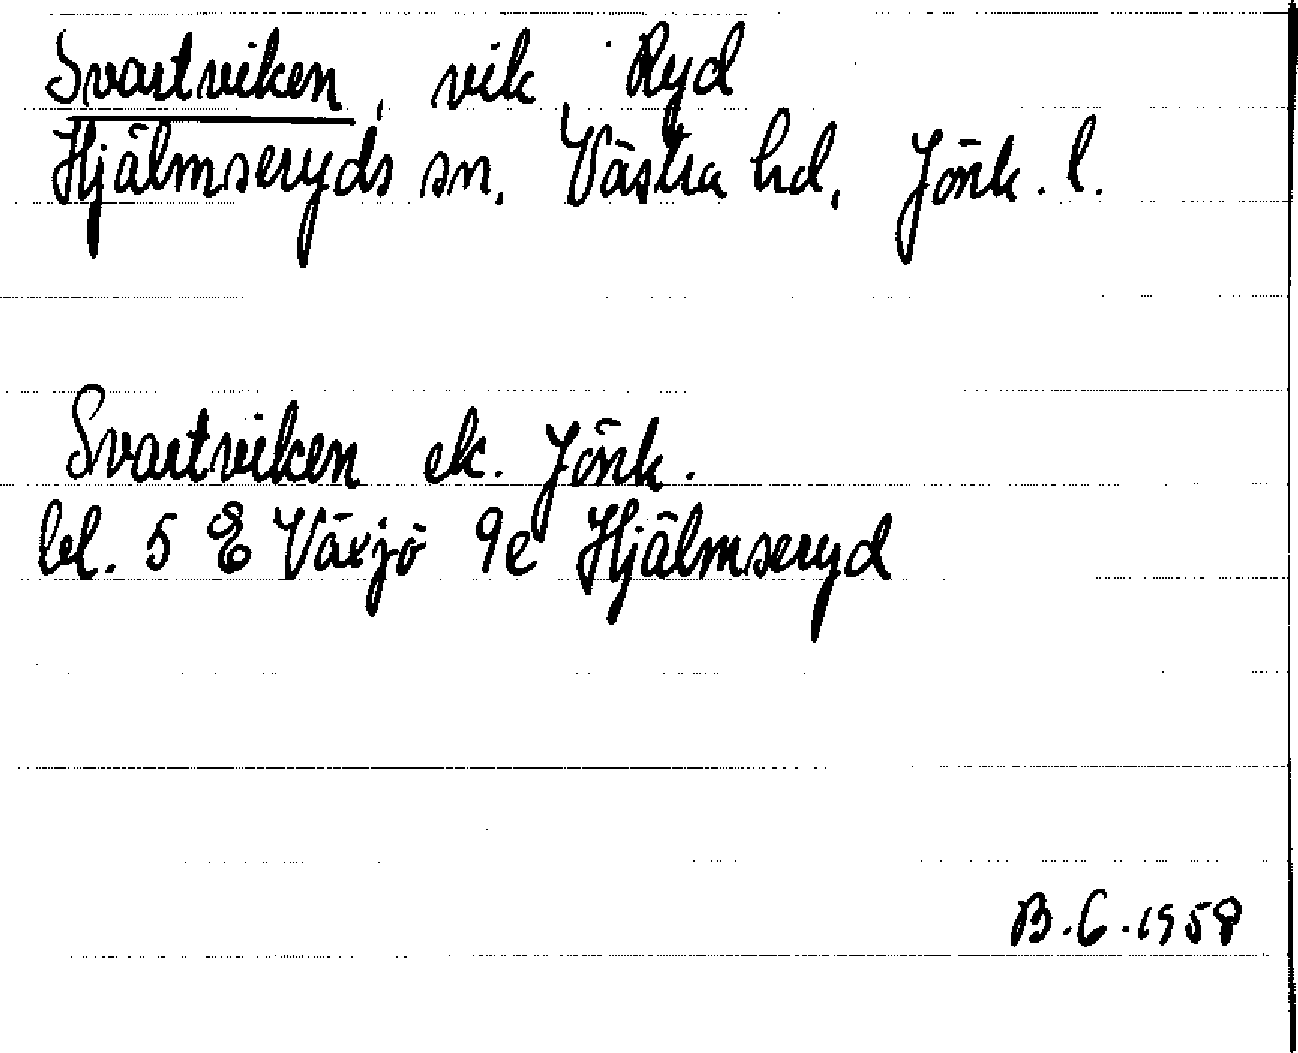 Svartviken, vik, Ryd
Hjälmseryds sn. Västra hd. Jönk. l.
Svartviken ek. Jönk.
bl. 5 E Växjö 9e Hjälmseryd
B.G. 1958